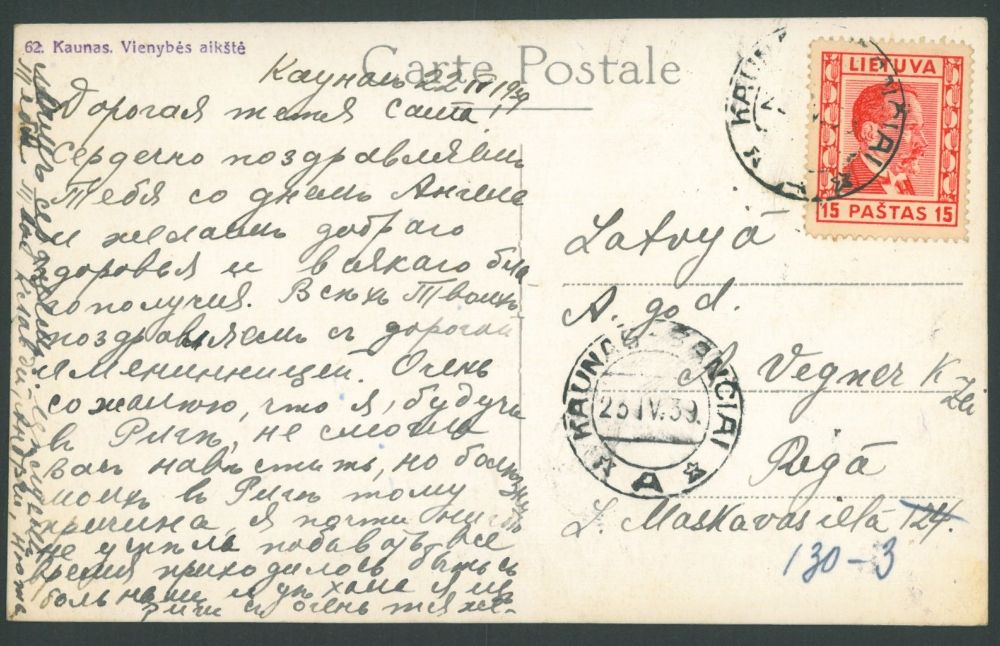 62. Kaunas. Vienybės aikštė
Carte Postale
LIETUVA
15 PAŠTAS 15
KAUNAS ANČIAI
A
Каунасъ 22 IV 1939
Дорогая тетя Саша
сердечно поздравляемъ
Тебя со днемъ Ангела
и желаемъ добраго
здоровья и всякаго бла
гополучия. Всѣхъ Твоихъ
поздравляемъ съ дорогой
Именинницей. Очень
сожалѣю, что я, будучи
въ Ригѣ, не смогла
васъ навѣстить, но
моихъ въ Ригѣ тому
причина, я почти нигдѣ
не успѣла побывать все
время приходилось быть съ
больными и уѣхала я изъ
Риги съ очень тяже-
Latvyā
A. god.
Vegner K-
Rīgā
L. Maskavas ielā 124.
130-3
KAUNAS-ŠANČIAI
26.IV.39.
A